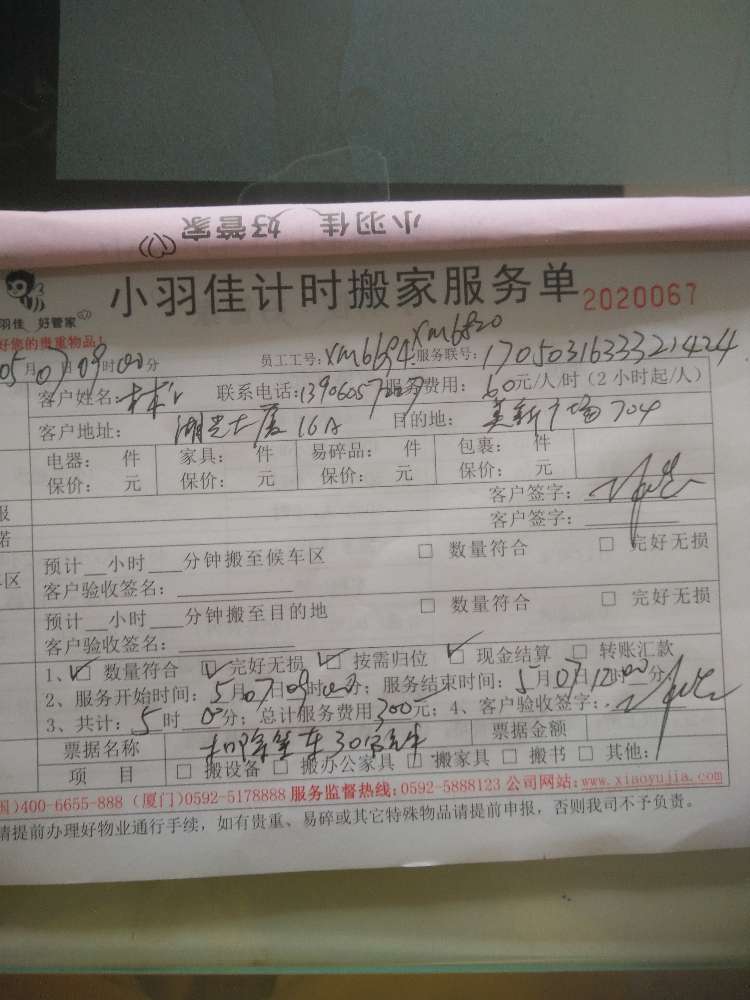 小羽佳 好管家
小羽佳计时搬家服务单 2020067
羽佳 好管家
好您的贵重物品!
05月07日09时00分 员工工号:xm6694.xm6820 服务联号:1705031633321424
客户姓名: 联系电话: 服务费用:60元/人/时(2小时起/人)
客户地址:湖光大厦16A 目的地:美新广场704
电器: 件 家具: 件 易碎品: 件 包裹: 件
保价: 元 保价: 元 保价: 元 保价: 元
客户签字:
客户签字:
报
诺
预计__小时___分钟搬至候车区 □ 数量符合 □ 完好无损
区 客户验收签名:
预计__小时___分钟搬至目的地 □ 数量符合 □ 完好无损
客户验收签名:
1、☑ 数量符合 ☑ 完好无损 ☑ 按需归位 ☑ 现金结算 □ 转账汇款
2、服务开始时间:5月07日09时00分;服务结束时间:5月07日12时00分
3、共计:5时00分;总计服务费用300元;4、客户验收签字:
票据名称 扣除等车30分钟 票据金额
项 目 □ 搬设备 □ 搬办公家具 □ 搬家具 □ 搬书 □ 其他:
国)400-6655-888 (厦门)0592-5178888 服务监督热线:0592-5888123 公司网站:www.xiaoyujia.com
请提前办理好物业通行手续,如有贵重、易碎或其它特殊物品请提前申报,否则我司不予负责。